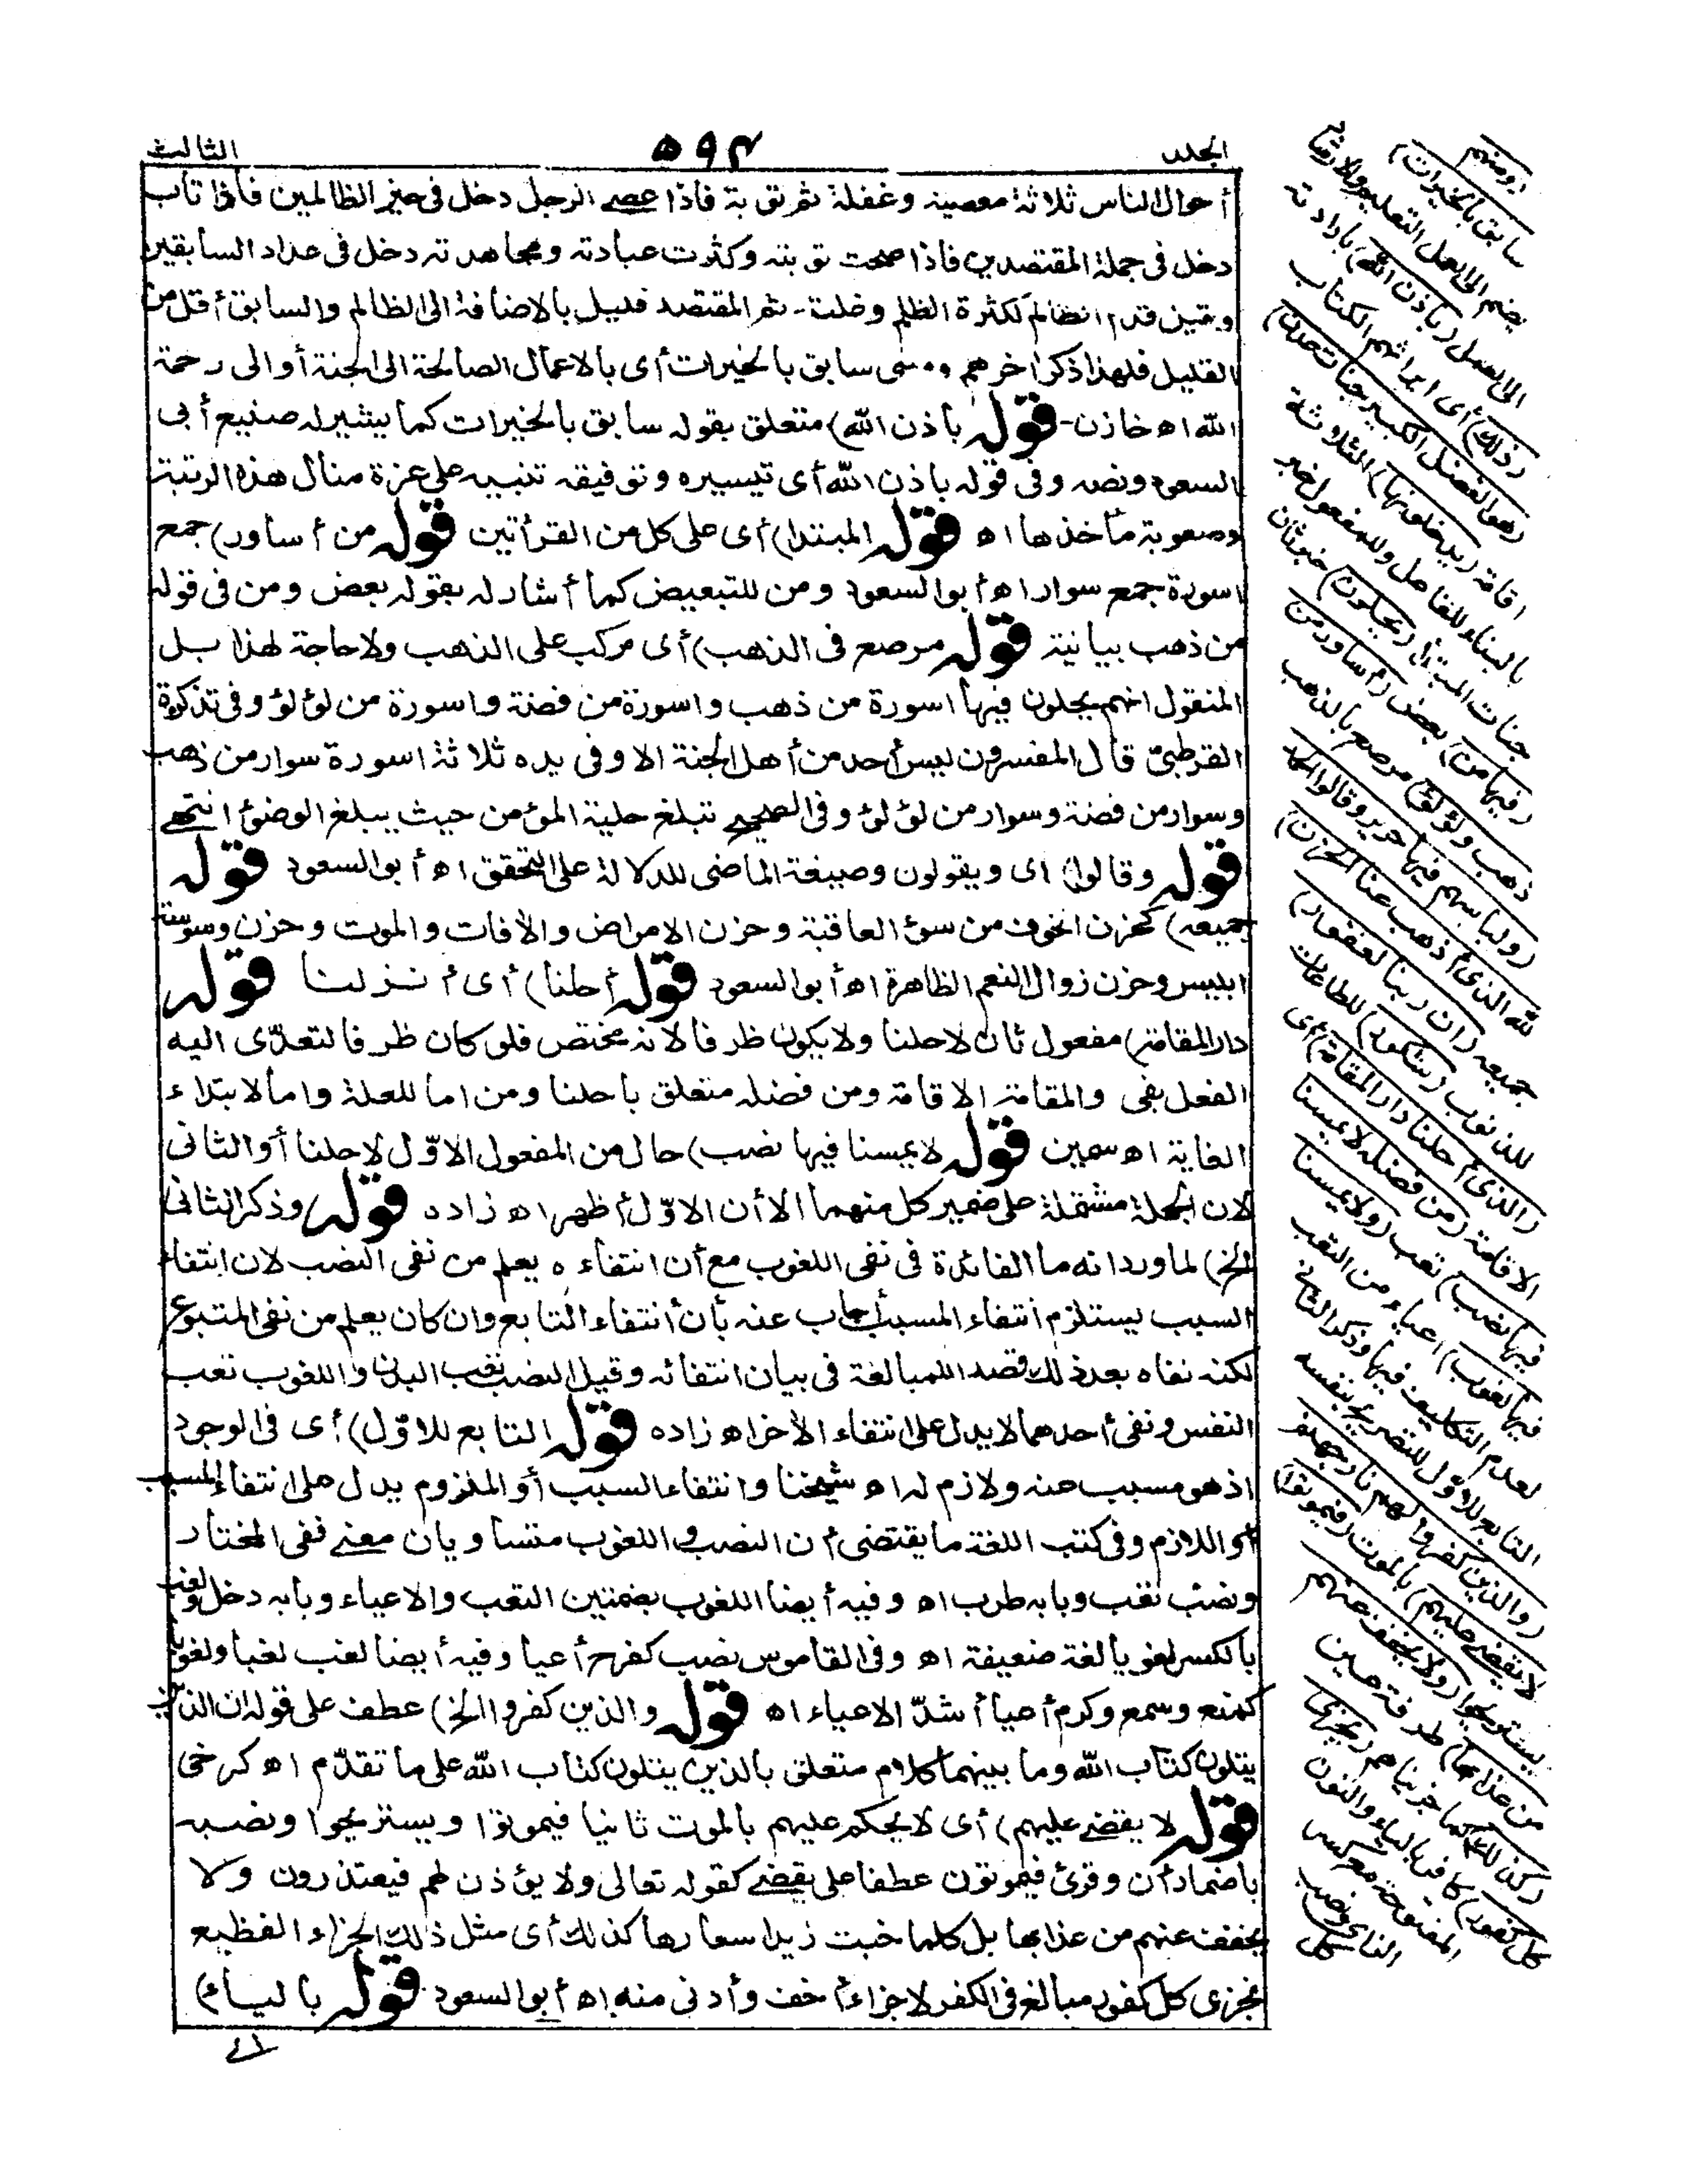 الجلد ۵۹۴ الثالث
أحوال الناس ثلاثة معصية وغفلة ثم توبة فاذا عصى الرجل دخل فى حيز الظالمين فاذا تاب
دخل فى جملة المقتصدين فاذا صحت توبته وكثرت عبادته ومجاهدته دخل فى عداد السابقين
وقيل قدم الظالم لكثرة الظلم وغلبته ثم المقتصد قليل بالاضافة الى الظالم والسابق أقل من
القليل فلهذا ذكر اخرهم ومعنى سابق بالخيرات أى بالاعمال الصالحة الى الجنة أو الى رحمة
الله اه خازن قوله باذن الله) متعلق بقوله سابق بالخيرات كما يشير له صنيع أبى
السعود ونصه وفى قوله باذن الله أى تيسيره وتوفيقه تنبيه على عزة منال هذه الرتبة
وصعوبة مأخذها اه قوله المبتدا) أى على كل من القرأتين قوله من أساور) جمع
اسورة جمع سوار اه أبو السعود ومن للتبعيض كما أشار له بقوله بعض ومن فى قوله
من ذهب بيانية قوله مرصع فى الذهب) أى مركب على الذهب ولا حاجة لهذا بل
المنقول انهم يحلون فيها اسورة من ذهب واسورة من فضة واسورة من لؤلؤ وفى تذكرة
القرطبىّ قال المفسرون ليس أحد من أهل الجنة الا وفى يده ثلاثة اسورة سوار من ذهب
وسوار من فضة وسوار من لؤلؤ وفى الصحيح تبلغ حلية المؤمن حيث يبلغ الوضوء انتهى
قوله وقالوا) اى ويقولون وصيغة الماضى للدلالة على التحقق اه أبو السعود قوله
جميعه) كحزن الخوف من سوء العاقبة وحزن الامراض والآفات والموت وحزن وسوسة
ابليس وحزن زوال النعم الظاهرة اه أبو السعود قوله أحلنا) أى أنزلنا قوله
دار المقامة) مفعول ثان لاحلنا ولا يكون ظرفا لانه مختص فلو كان ظرفا لتعدّى اليه
الفعل بفى والمقامة الاقامة ومن فضله متعلق باحلنا ومن اما للعلة واما لابتداء
الغاية اه سمين قوله لا يمسنا فيها نصب) حال من المفعول الاوّل لاحلنا أو الثانى
لان الجملة مشتملة على ضمير كل منهما الا أن الاوّل أظهر اه زاده قوله وذكر الثانى
الخ) لما ورد انه ما الفائدة فى نفى اللغوب مع أن انتفاءه يعلم من نفى النصب لان انتفاء
السبب يستلزم انتفاء المسبب أجاب عنه بأن أنتفاء التابع وان كان يعلم من نفى المتبوع
لكنه نفاه بعد ذلك قصد اللمبالغة فى بيان انتفائه وقيل النصب تعب البدن واللغوب تعب
النفس ونفى أحدهما لا يدل على انتفاء الآخر اه زاده قوله التابع للاوّل) أى فى الوجود
اذ هو مسبب عنه ولازم له اه شيخنا وانتفاء السبب أو الملزوم يدل على انتفاء المسبب
أو اللازم وفى كتب اللغة ما يقتضى أن النصب واللغوب متساويان معنى ففى المختار
ونصب تعب وبابه طرب اه وفيه أيضا اللغوب بضمتين التعب والاعياء وبابه دخل ولغب
بالكسر لغوبا لغة ضعيفة اه وفى القاموس نصب كفرح أعيا وفيه أيضا لغب لغبا ولغوبا
كمنع وسمع وكرم أعيا أشدّ الاعياء اه قوله والذين كفروا الخ) عطف على قوله ان الذين
يتلون كتاب الله وما بينهما كلام متعلق بالذين يتلون كتاب الله على ما تقدّم اه كرخى
قوله لا يقضى عليهم) أى لا يحكم عليهم بالموت ثانيا فيموتوا ويستريحوا ونصبه
باضمار أن وقرئ فيموتون عطفا على يقضى كقوله تعالى ولا يؤذن لهم فيعتذرون ولا
يخفف عنهم من عذابها بل كلما خبت زيد اسعارها كذلك أى مثل ذلك الجزاء الفظيع
نجزى كل كفور مبالغ فى الكفر لا جزاء أخف وأدنى منه اه أبو السعود قوله بالياء)
ومنهم
سابق بالخيرات)
يضم الى العمل التعليم والارشاد
الى العمل (باذن الله) بارادته
(ذلك) أى ايراثهم الكتاب
(هو الفضل الكبير جنات عدن)
اقامة (يدخلونها) الثلاثة
بالبناء للفاعل وللمفعول خبر
جنات المبتدأ (يحلون) خبر ثان
(فيها من) بعض (أساور من
ذهب ولؤلؤ) مرصع بالذهب
(ولباسهم فيها حرير وقالوا الحمد
لله الذى أذهب عنا الحزن)
جميعه (ان ربنا لغفور)
للذنوب (شكور) للطاعات
(الذى أحلنا دار المقامة) أى
الاقامة (من فضله لا يمسنا
فيها نصب) تعب (ولا يمسنا
فيها لغوب) اعياء من التعب
لعدم التكليف فيها وذكر الثانى
التابع للاوّل للتصريح بنفيه
(والذين كفروا لهم نار جهنم
لا يقضى عليهم) بالموت (فيموتوا)
يستريحوا (ولا يخفف عنهم
من عذابها) طرفة عين
(كذلك) كما جزيناهم (يجزى
كل كفور) كافر بالياء والنون
المفتوحة مع كسر
الزاى ونصب
كل